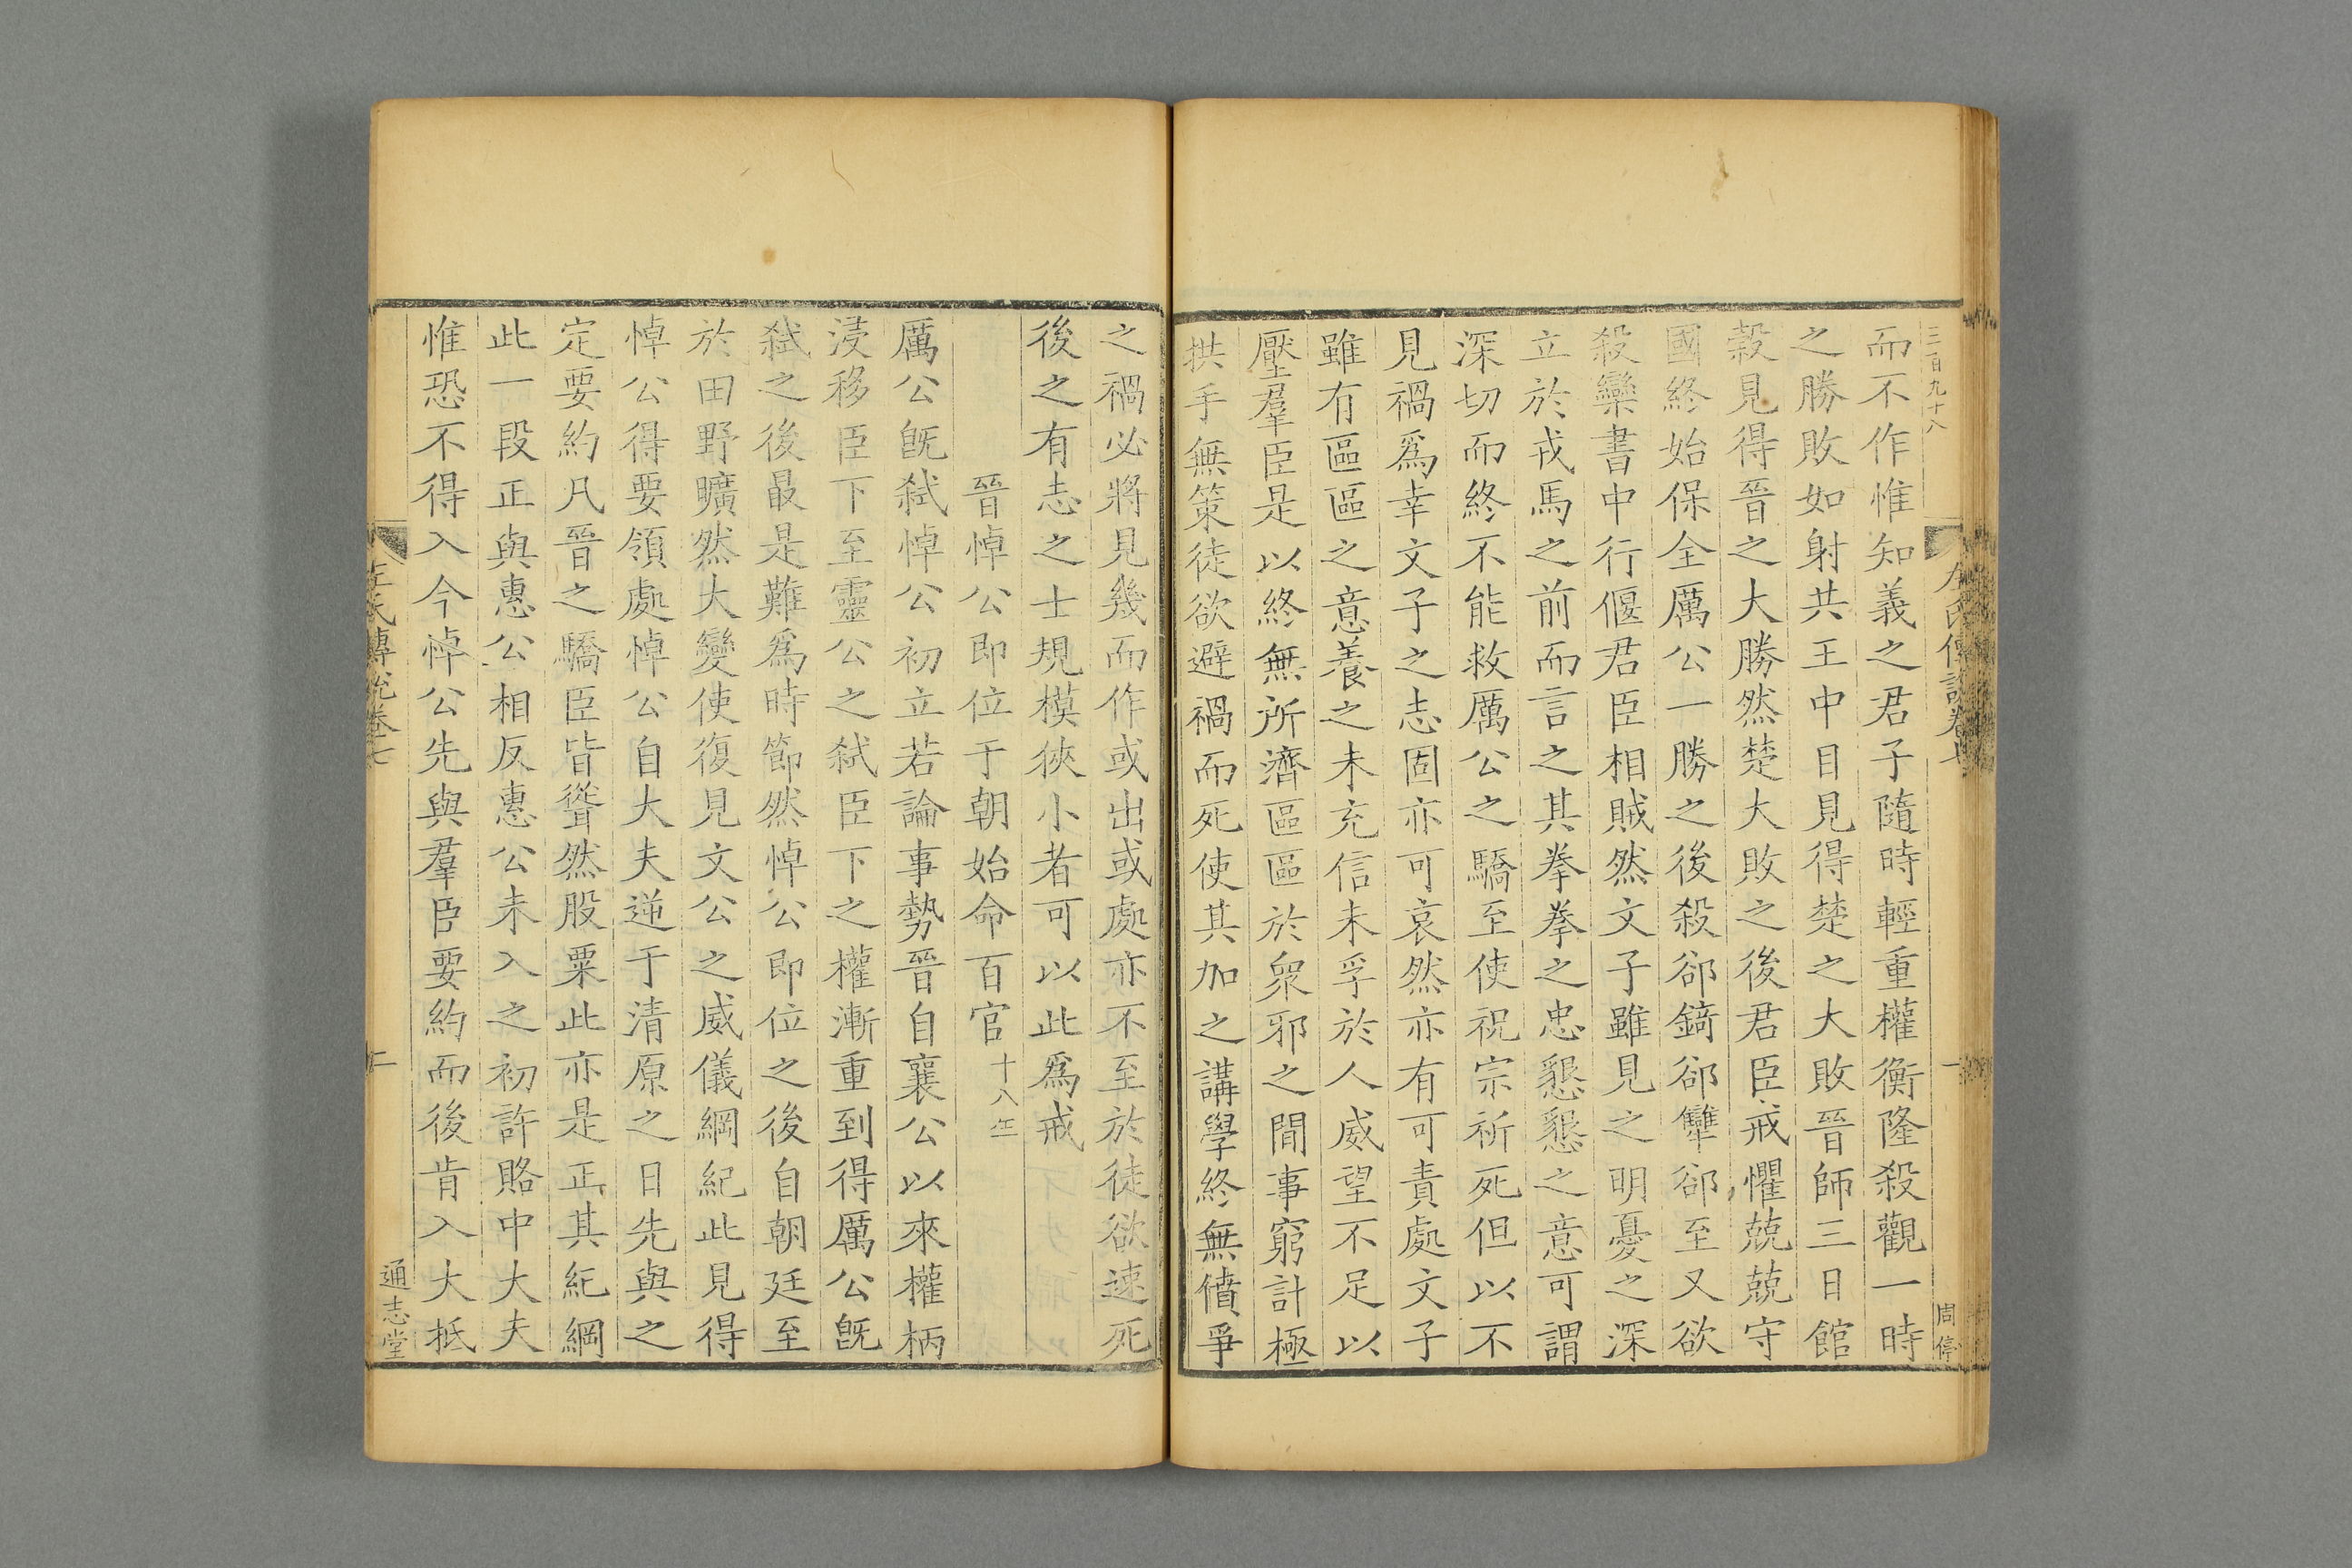 三百九十八
左氏傳説卷七
一
周停
而不作惟知義之君子隨時輕重權衡隆殺觀一時
之勝敗如射共王中目見得楚之大敗晉師三日館
榖見得晉之大勝然楚大敗之後君臣戒懼兢兢守
國終始保全厲公一勝之後殺郤錡郤犫郤至又欲
殺欒書中行偃君臣相賊然文子雖見之明憂之深
立於戎馬之前而言之其拳拳之忠懇懇之意可謂
深切而終不能救厲公之驕至使祝宗祈死但以不
見禍爲幸文子之志固亦可哀然亦有可責處文子
雖有區區之意養之未充信未孚於人威望不足以
壓羣臣是以終無所濟區區於衆邪之間事窮計極
拱手無策徒欲避禍而死使其加之講學終無僨爭
之禍必將見幾而作或出或處亦不至於徒欲速死
後之有志之士規模狹小者可以此爲戒
晉悼公即位于朝始命百官十八年
厲公旣弑悼公初立若論事勢晉自襄公以來權柄
浸移臣下至靈公之弑臣下之權漸重到得厲公旣
弑之後最是難爲時節然悼公即位之後自朝廷至
於田野曠然大變使復見文公之威儀綱紀此見得
悼公得要領處悼公自大夫逆于清原之日先與之
定要約凡晉之驕臣皆聳然股粟此亦是正其紀綱
此一段正與惠公相反惠公未入之初許賂中大夫
惟恐不得入今悼公先與羣臣要約而後肯入大抵
左氏傳説卷七
二
通志堂